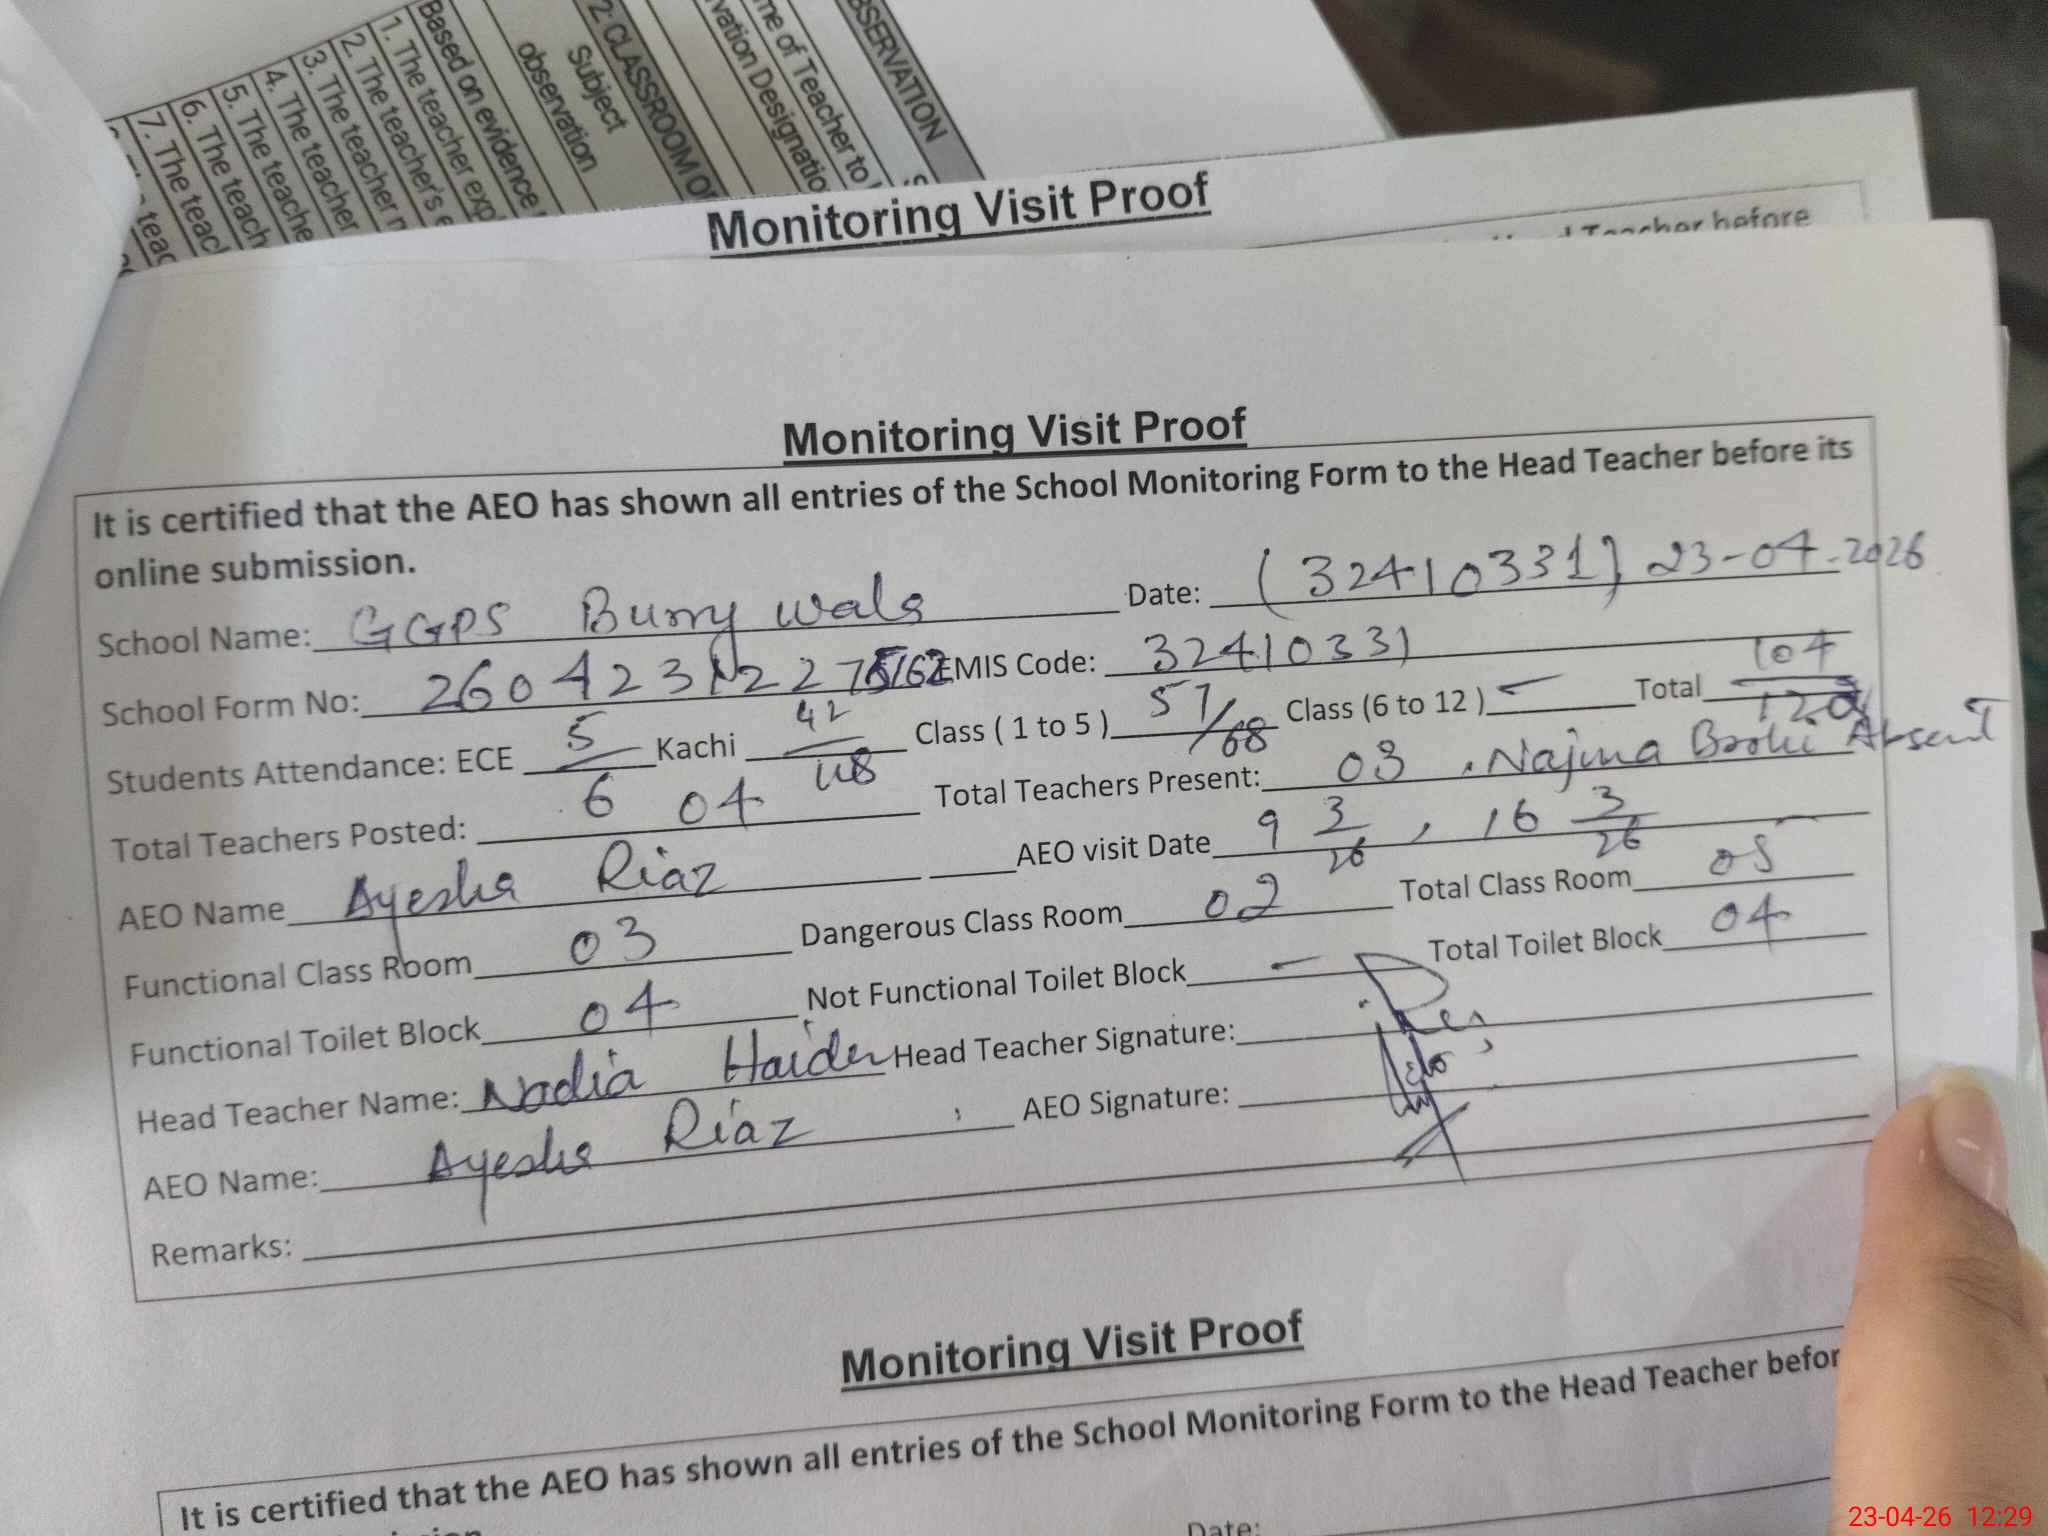 BSERVATION
me of Teacher to
vation Designatio
2: CLASSROOM O
Subject
observation
Based on evidence
1. The teacher exp
2. The teacher's e
3. The teacher n
4. The teacher
5. The teache
6. The teach
7. The teac
teac
Monitoring Visit Proof
Teacher before
Monitoring Visit Proof
It is certified that the AEO has shown all entries of the School Monitoring Form to the Head Teacher before its
online submission.
School Name: GGPS Burry wala Date: (32410331) 23-04-2026
School Form No: EMIS Code: 32410331
Students Attendance: ECE 5/6 Kachi 42/48 Class ( 1 to 5 ) 57/68 Class (6 to 12 ) - Total 104/122
Total Teachers Posted: 04 Total Teachers Present: 03 . Najma Absent
AEO Name Ayesha Riaz AEO visit Date 9 3/26 , 16 3/26
Functional Class Room 03 Dangerous Class Room 02 Total Class Room 05
Functional Toilet Block 04 Not Functional Toilet Block - Total Toilet Block 04
Head Teacher Name: Nadia Haider Head Teacher Signature:
AEO Name: Ayesha Riaz AEO Signature:
Remarks:
Monitoring Visit Proof
It is certified that the AEO has shown all entries of the School Monitoring Form to the Head Teacher befor
Date:
23-04-26 12:29